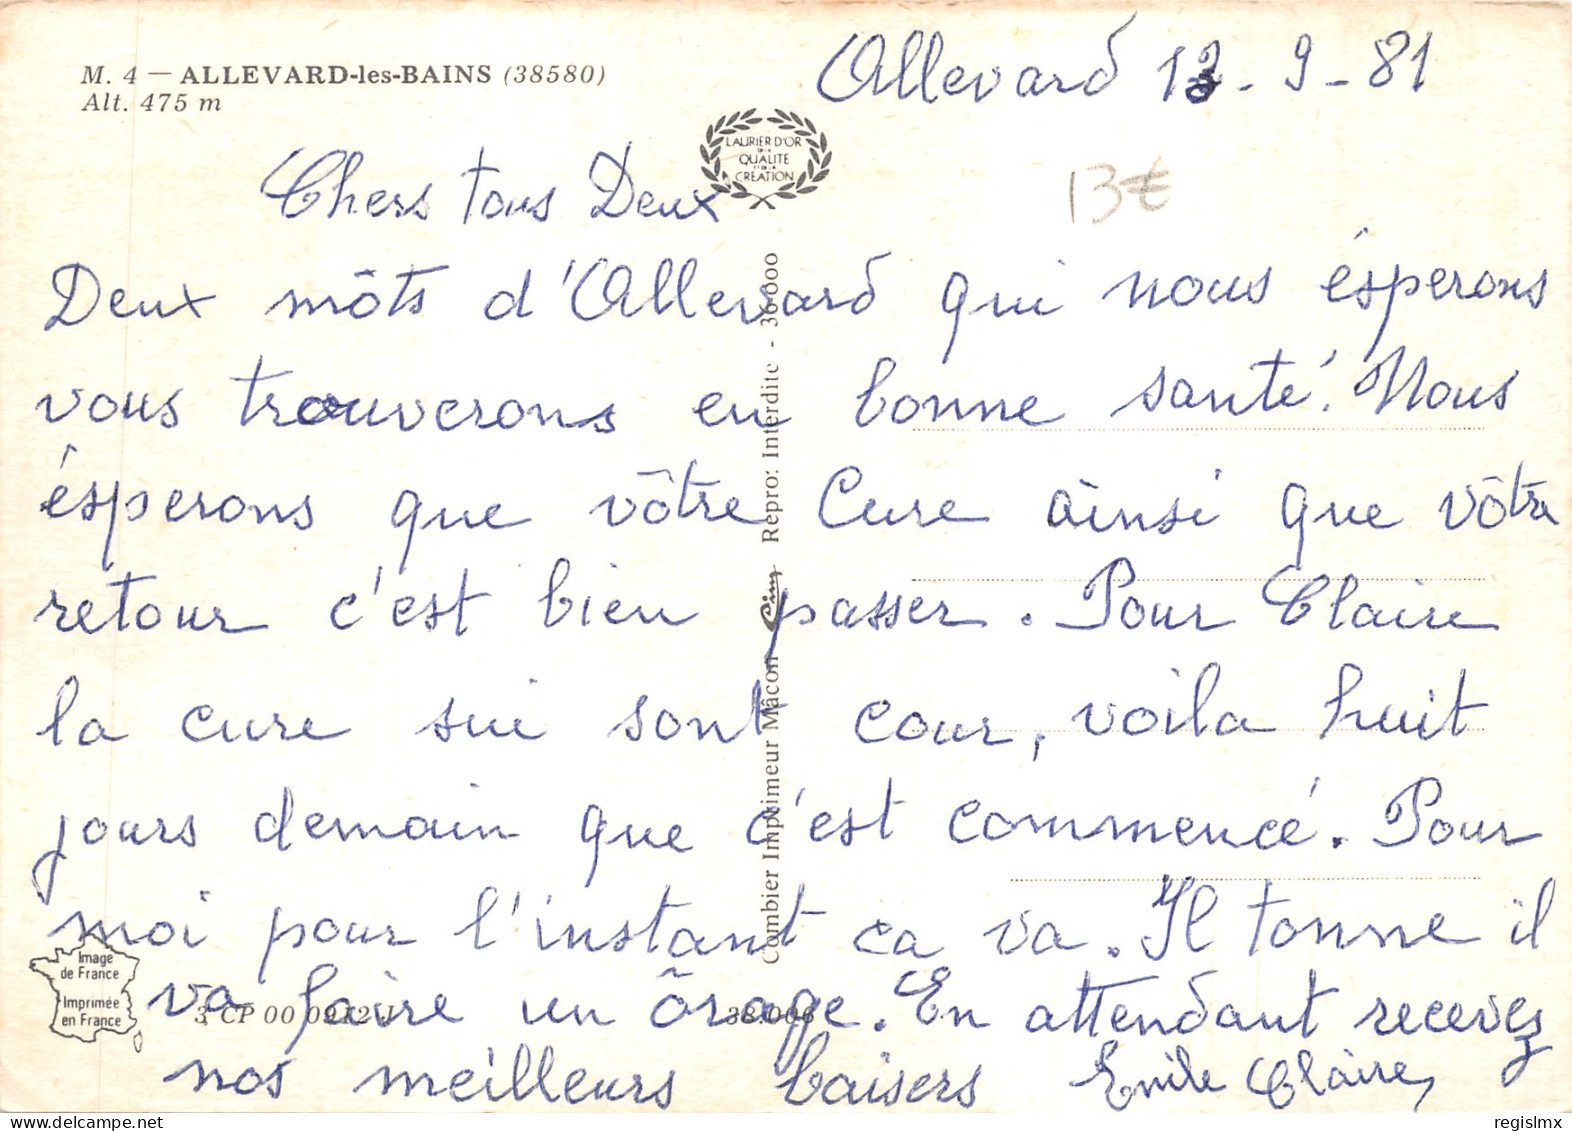 M. 4 — ALLEVARD-les-BAINS (38580)
Alt. 475 m
Allevard 13-9-81
LAURIER D'OR
DE LA
QUALITE
ET DE LA
CRÉATION
13€
Chers tous Deux
Deux môts d'Allevard qui nous ésperons
vous trouverons en bonne santé. Nous
ésperons que vôtre Cure ainsi que vôtre
retour c'est bien passer. Pour Claire
la cure sui sont cour, voila huit
jours demain que c'est commencé. Pour
moi pour l'instant ca va. Il tonne il
va faire un ôrage. En attendant recevez
nos meilleurs baisers Emile Claire,
Combier Imprimeur Mâcon Cim Repro: Interdite - 36 000
Image
de France
Imprimée
en France
3 CP 00 0912
38.006
regislmx